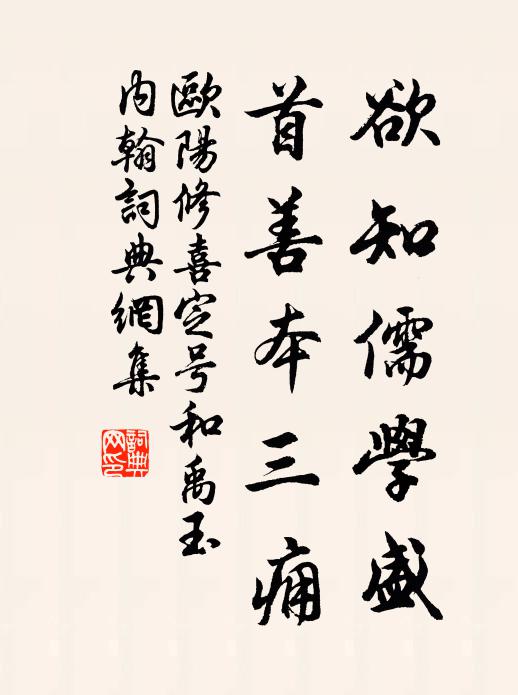 欲知儒學盛
首善本三痛
歐陽修喜定号和禹玉
内翰詞典網集
詞典網印